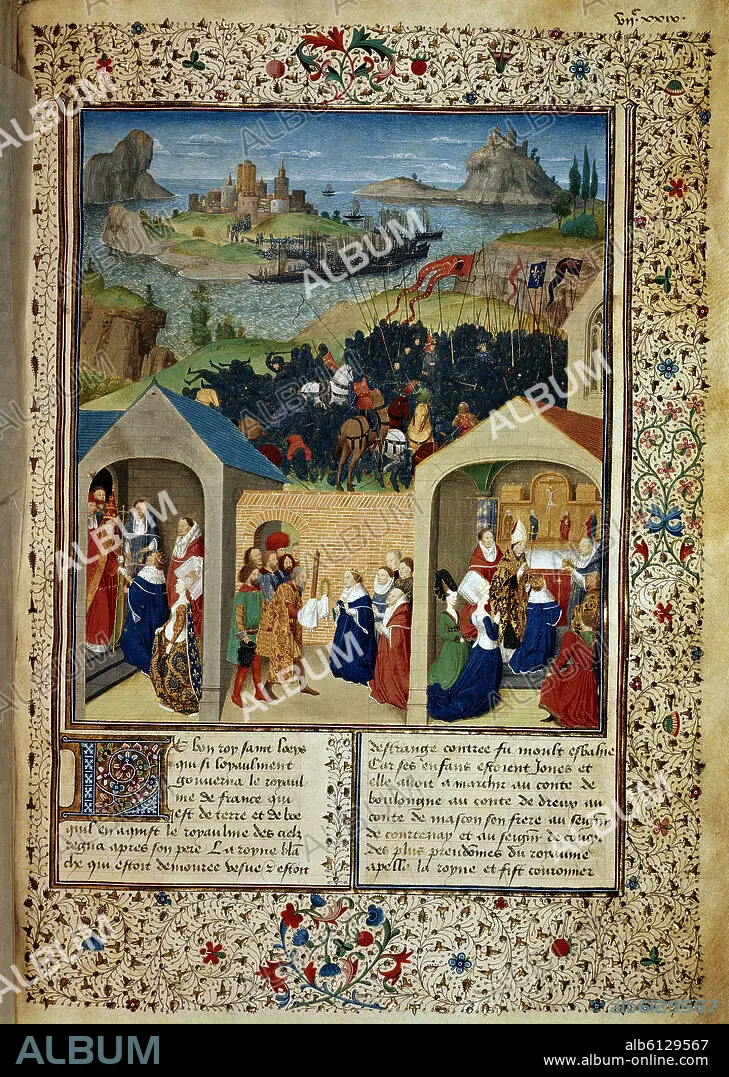 vijc xxix.
Le bon roy saint loeys
qui si loyaulment
gouverna le royaul
me de france qui
est de terre et de
quil en aquist le royaulme des
regna apres son pere La royne blã
che qui estoit demouree vesve & estoit
destrange contree fu moult esbahie
Car ses enfans estoient Jones et
elle avoit a marchir au conte de
boulongne au conte de dreux au
conte de mascon son frere au seignr
de courtenay et au seignr de coucy
des plus preudomes du royaume
apella la royne et fist couronner
ALBUM
alb6129567
www.album-online.com